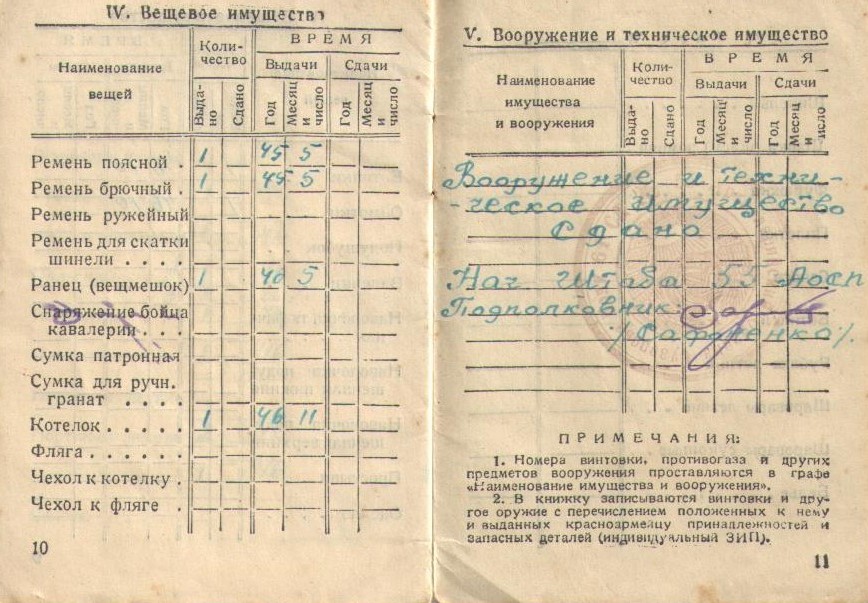 IV. Вещевое имущество
Наименование
вещей
Коли-
чество
ВРЕМЯ
Выдачи
Сдачи
Выда-
но
Сдано
Год
Месяц
и
число
Год
Месяц
и
число
Ремень поясной . 1 45 5
Ремень брючный . 1 45 5
Ремень ружейный
Ремень для скатки
шинели . . . .
Ранец (вещмешок) 1 40 5
Снаряжение бойца
кавалерии . . .
Сумка патронная
Сумка для ручн.
гранат . . . .
Котелок . . . . . 1 46 11
Фляга . . . . . .
Чехол к котелку .
Чехол к фляге .
10
V. Вооружение и техническое имущество
Наименование
имущества
и вооружения
Коли-
чество
ВРЕМЯ
Выдачи
Сдачи
Выда-
но
Сдано
Год
Месяц
и
число
Год
Месяц
и
исло
Вооружение и техни-
-ческое имущество
Сдано
Нач штаба 55
Подполковник
ПРИМЕЧАНИЯ:
1. Номера винтовки, противогаза и других
предметов вооружения проставляются в графе
«Наименование имущества и вооружения».
2. В книжку записываются винтовки и дру-
гое оружие с перечислением положенных к нему
и выданных красноармейцу принадлежностей и
запасных деталей (индивидуальный ЗИП).
11